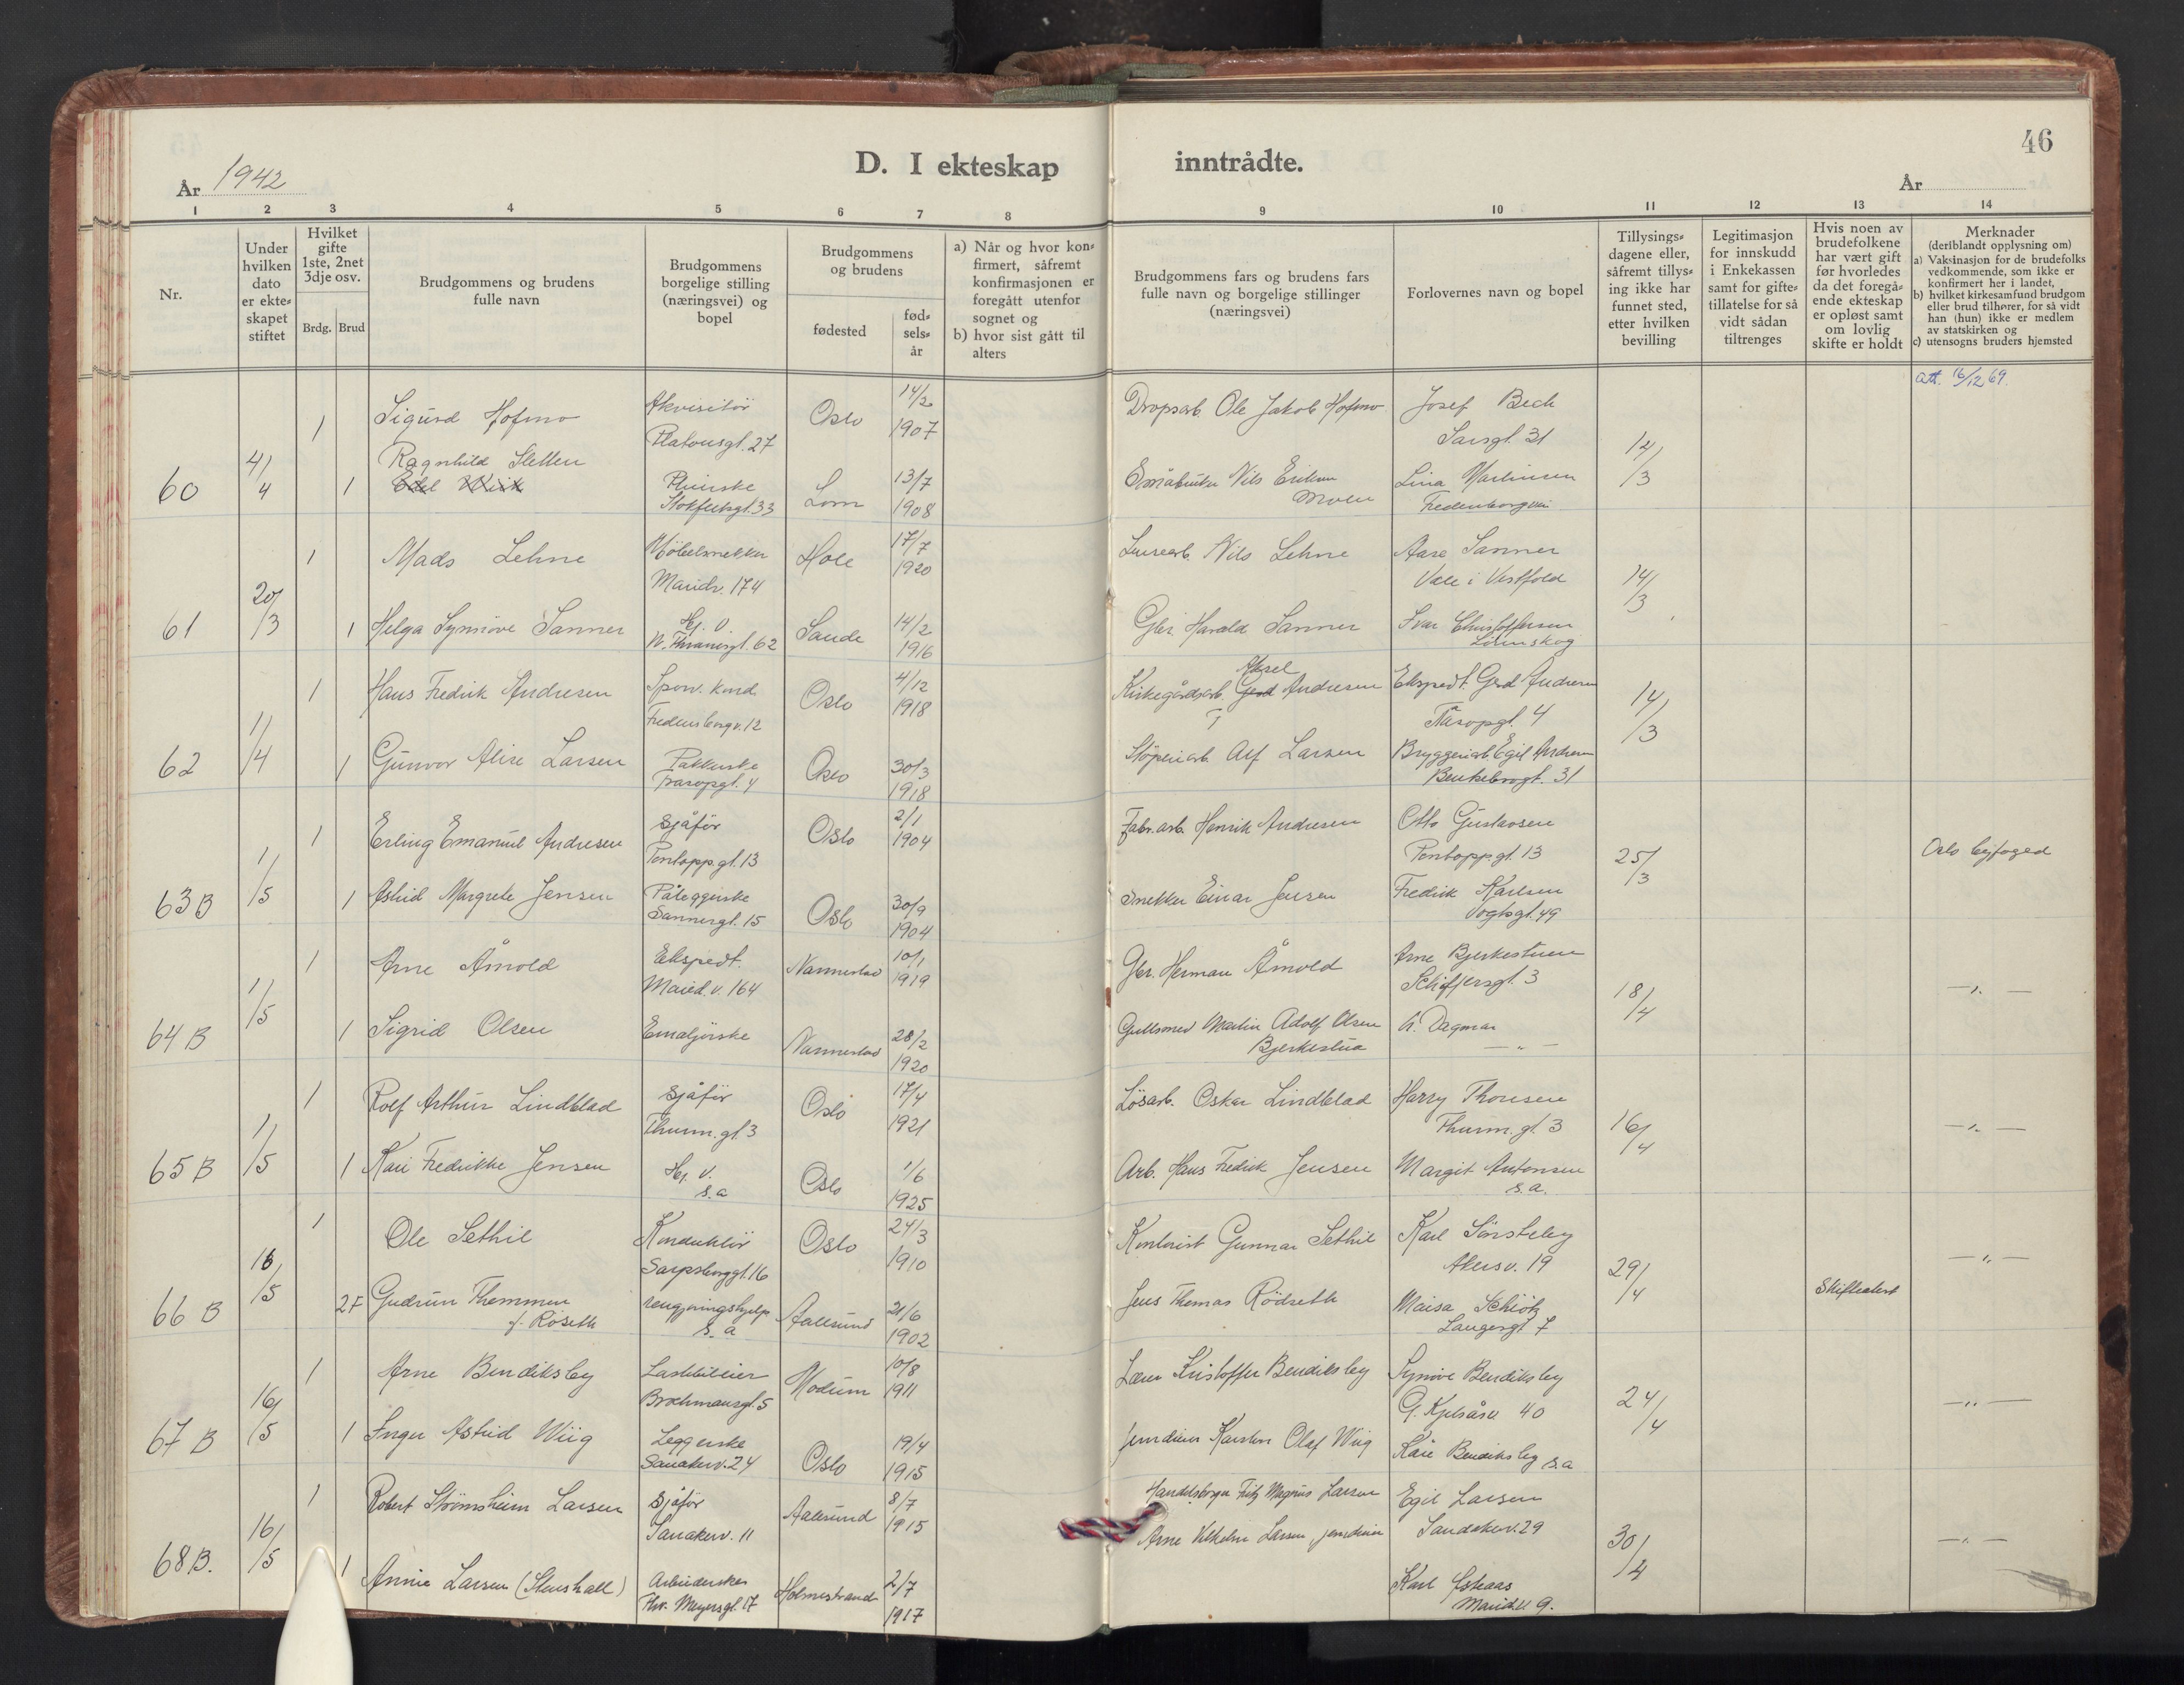 46
D. I ekteskap inntrådte.
År 1942
År
1 2 3 4 5 6 7 8 9 10 11 12 13 14
Nr.
Under hvilken dato er ekte-skapet stiftet
Hvilket gifte 1ste, 2net 3dje osv.
Brdg. Brud
Brudgommens og brudens fulle navn
Brudgommens borgelige stilling (næringsvei) og bopel
Brudgommens og brudens
fødested
fød-sels-år
a) Når og hvor kon-firmert, såfremt konfirmasjonen er foregått utenfor sognet og
b) hvor sist gått til alters
Brudgommens fars og brudens fars fulle navn og borgelige stillinger (næringsvei)
Forlovernes navn og bopel
Tillysings-dagene eller, såfremt tillys-ing ikke har funnet sted, etter hvilken bevilling
Legitimasjon for innskudd i Enkekassen samt for gifte-tillatelse for så vidt sådan tiltrenges
Hvis noen av brudefolkene har vært gift før hvorledes da det foregå-ende ekteskap er opløst samt om lovlig skifte er holdt
Merknader
(deriblandt opplysning om)
a) Vaksinasjon for de brudefolks vedkommende, som ikke er konfirmert her i landet,
b) hvilket kirkesamfund brudgom eller brud tilhører, for så vidt han (hun) ikke er medlem av statskirken og
c) utensogns bruders hjemsted
Att. 16/12 69.
60 4/4
1 Sigurd Hofmo Akvisitör Platousgt. 27 Oslo 14/2 1907 Dropsarb. Ole Jakob Hofmo Josef Bech Sarsgt. 31 14/3
1 Ragnhild Sletten Edel Wiik Pleierske Stokfletsgt. 33 Lom 13/7 1908 Småbruker Nils Eriksen Moen Lina Martinsen Fredensborgvei
61 20/3
1 Mads Lehne Möbelsnekker Maridv. 174 Hole 17/7 1920 Nils Lehne Aase Sanner Våle i Vestfold 14/3
1 Helga Synnöve Sanner Hj. v. M. Thranesgt. 62 Sande 14/2 1916 Gbr. Harald Sanner Ivar Christoffersen Lörenskog
62 11/4
1 Hans Fredrik Andresen Sporv. kond. Fredensborgv. 12 Oslo 4/12 1918 Kirkegårdsarb. Gerd Aksel Andresen Ekspedt. Gerd Andresen Tåsopgt. 4 14/3
1 Gunvor Alise Larsen Pakkerske Trasopgt. 4 Oslo 30/3 1918 Stöperiarb. Alf Larsen Bryggeriarb. Egil Andresen Bentsebrogt. 31
63 B 1/5
1 Erling Emanuel Andresen Sjåför Pontoppgt. 13 Oslo 2/1 1904 Fabr. arb. Henrik Andresen Otto Gustavsen Pontopp. gt. 13 25/3 Oslo byfoged
1 Astrid Margrete Jensen Påleggerske Sannergt. 15 Oslo 30/9 1904 Snekker Einar Jensen Fredrik Karlsen Vogtsgt. 49
64 B 1/5
1 Arne Åmold Ekspedt. Marid. v. 164 Nannestad 10/1 1919 Gbr. Herman Åmold Arne Bjerkestuen Schiffersgt. 3 18/4 — " —
1 Sigrid Olsen Emaljörske Nannestad 28/2 1920 Gullsmed Martin Adolf Olsen Bjerkestua Dagmar — " —
65 B 1/5
1 Rolf Arthur Lindblad Sjåför Thurm. gt. 3 Oslo 17/4 1921 Lösarb. Oskar Lindblad Harry Thonsen Thurm. gt. 3 16/4 — " —
1 Kari Fredrikke Jensen Hj. v. s. a. Oslo 1/6 1925 Arb. Hans Fredrik Jensen Margit Antonsen s. a.
66 B 16/5
1 Ole Sethil Konduktör Sarpsborggt. 16 Oslo 24/3 1910 Kontorist Gunnar Sethil Karl Sörsteby Akersv. 19 29/4 — " —
2 F Gudrun Themmen f. Röseth rengjöringshjelp s. a Aalesund 21/6 1902 Jens Thomas Rödseth Maisa Schiötz Langesgt. 7 Skifteattest
67 B 16/5
1 Arne Bendiksby Lastebileier Brochmansgt. 5 Modum 10/8 1911 Lærer Kristoffer Bendiksby Synöve Bendiksby G. Kjelsåsv. 40 24/4 — " —
1 Inger Astrid Wiig Leggerske Sanakerv. 24 Oslo 19/4 1915 Karsten Olaf Wiig Kåre Bendiksby s. a
68 B. 16/5
1 Robert Strømsheim Larsen Sjåför Sanakerv. 11 Aalesund 8/7 1915 Handelsborger Fritz Magnus Larsen Egil Larsen Sandakerv. 29 30/4 — " —
1 Annie Larsen (Stenshall) Arbeiderske Thv. Meyersgt. 17 Holmestrand 2/7 1917 Arne Vilhelm Larsen, Karl Maridv. 9.